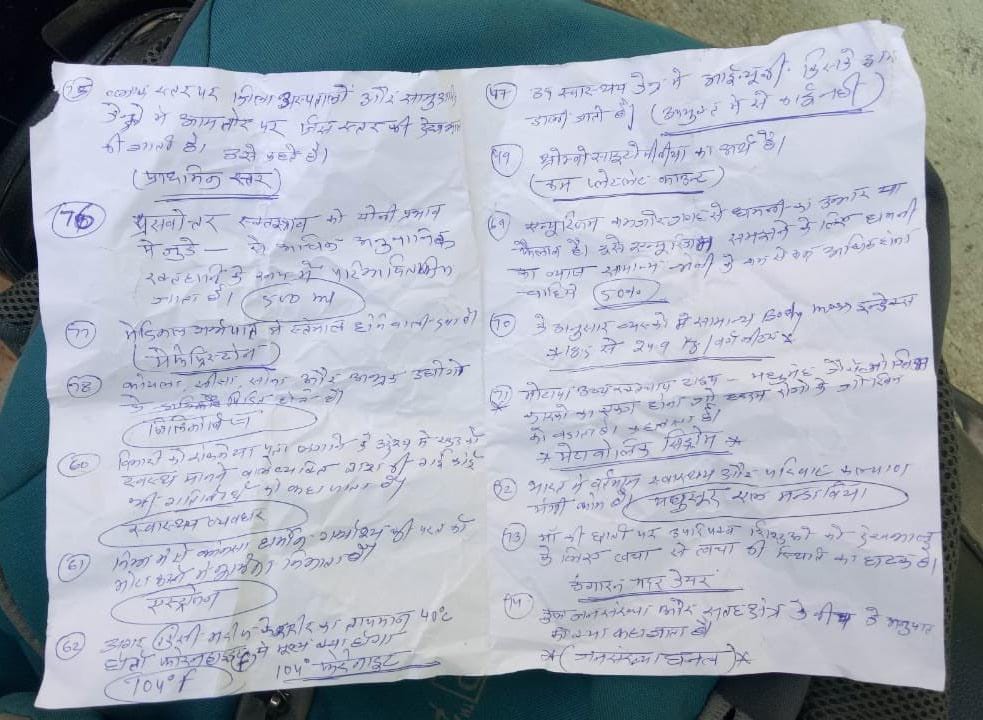 75 स्तर पर जिला अस्पतालों और सामुदायिक
केन्द्रो में आमतौर पर किस स्तर की देखभाल
की जाती है। उसे कहते है।
(प्राथमिक स्तर)
76 रक्तस्त्राव को योनी प्रसव
में जुड़े — से अधिक अनुमानित
रक्तहानी के रूप में परिभाषित किया
जाता है। 500 ml
77 मेडिकल गर्भपात में इस्तेमाल होने वाली दवा है।
(मेफिप्रिस्टोन)
78 कोयला, सीसा, सोना और अभ्रक उद्योगो
से होता है।
सिलिकोसिस
60 बिमारी को रोकने या पता लगाने के उद्देश्य से खुद को
स्वस्थ मानने वाले व्यक्ति द्वारा की गई कोई
भी गतिविधि को कहा जाता है।
स्वास्थ्य व्यवहार
61 निम्न में से कौनसा हार्मोन गर्भाशय की परत को
मोटा करने में भूमिका निभाता है
एस्ट्रोजन
62 अगर किसी मरीज के शरीर का तापमान 40°C
हो तो फॉरेनहाइट में मूल्य क्या होगा
104°F 104° फारेनहाइट
47 उप स्वास्थ्य केंद्र में आई-यूसी. किसके द्वारा
डाली जाती है। (उपयुक्त में से कोई नही)
49 थ्रोम्बोसाइटोपीनिया का अर्थ है।
(कम प्लेटलेट काउन्ट)
69 एन्यूरिज्म कमजोर जगह से धमनी का उभार या
फैलाव है। इसे एन्यूरिज्म समझने के लिए धमनी
का व्यास सामान्य से कम से कम अधिक होना
चाहिये 50%
70 के अनुसार व्यस्को में सामान्य Body mass इन्डेक्स
*18.5 से 24.9 kg/वर्ग मीटर*
71 मोटापा उच्च रक्तचाप टाइप - मधुमेह
का एक साथ होना जो ह्रदय रोगो के जोखिम
को बढ़ाता है। कहलाता है।
* मेटाबोलिक सिंड्रोम *
72 भारत में वर्तमान स्वास्थ्य और परिवार कल्याण
मंत्री कौन है। मनसुख एल मन्डाविया
73 माँ की छाती पर शिशुओ की देखभाल
के लिए त्वचा से त्वचा की स्थिति का घटक है।
कंगारू मदर केयर
74 कुल जनसंख्या और सतह क्षेत्र के बीच के अनुपात
को क्या कहा जाता है।
*(जनसंख्या घनत्व)*